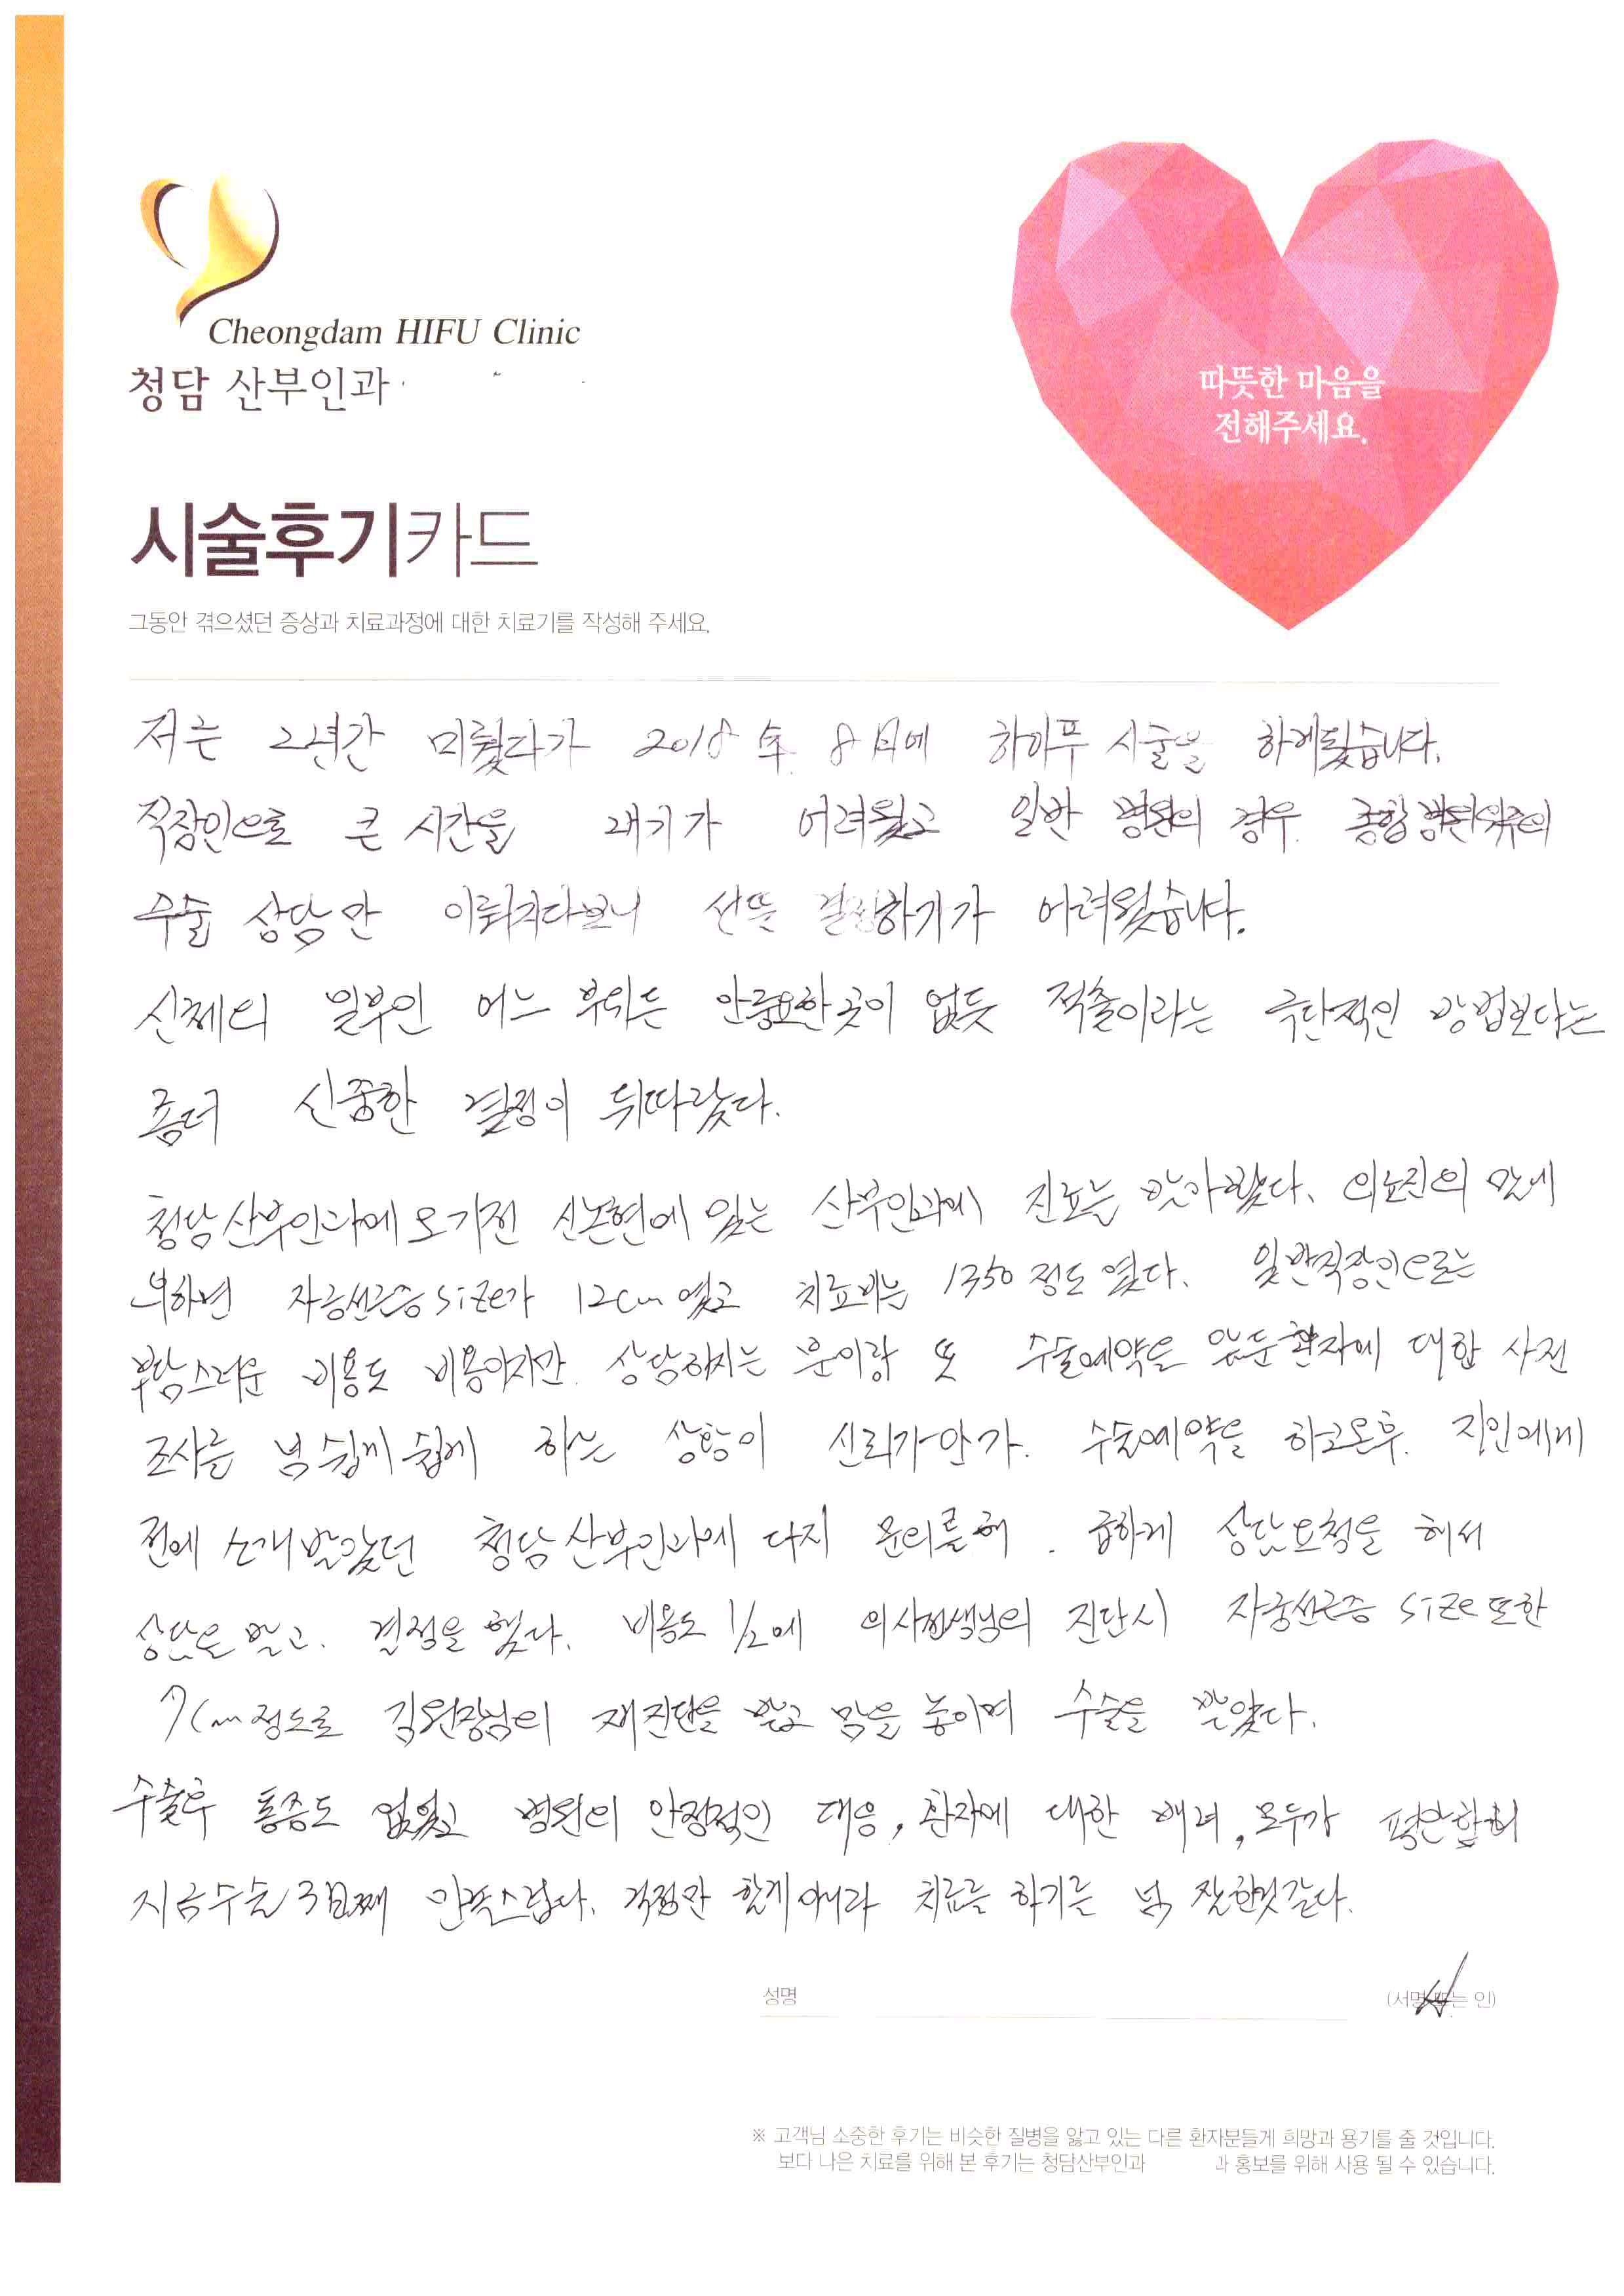 Cheongdam HIFU Clinic
청담 산부인과
따뜻한 마음을
전해주세요.
시술후기카드
그동안 겪으셨던 증상과 치료과정에 대한 치료기를 작성해 주세요.
저는 2년간 미뤘다가 2018年 8月에 하이푸 시술을 하게됐습니다.
직장인으로 큰 시간을 내기가 어려웠고 일반 병원의 경우 종합병원위주의
수술 상담만 이뤄지다보니 선뜻 결정하기가 어려웠습니다.
신체의 일부인 어느 부위든 안중요한곳이 없듯 적출이라는 극단적인 방법보다는
좀더 신중한 결정이 뒤따랐다.
청담산부인과에 오기전 신논현에 있는 산부인과에 진료는 받아봤다. 의료진의 말에
의하면 자궁선근증 size가 12cm 였고 치료비는 1350 정도 였다. 일반직장인으로는
부담스러운 비용도 비용이지만 상담하시는 분이랑 또 수술예약을 앞둔환자에 대한 사전
조사를 넘 쉽게 쉽게 하는 상황이 신뢰가안가. 수술예약을 하고온후. 지인에게
전에 소개받았던 청담산부인과에 다시 문의를해. 급하게 상담요청을 해서
상담을 받고. 결정을 했다. 비용도 1/2에 의사선생님의 진단시 자궁선근증 size 또한
7cm정도로 김원장님의 재진단을 받고 맘을 놓이며 수술을 받았다.
수술후 통증도 없었고 병원의 안정적인 대응, 환자에 대한 배려, 모두가 평안함히
지금수술 3日째 만족스럽다. 걱정만 할게 아니라 치료를 하기를 넘 잘한것같다.
성명
(서명 또는 인)
※ 고객님 소중한 후기는 비슷한 질병을 앓고 있는 다른 환자분들게 희망과 용기를 줄 것입니다.
보다 나은 치료를 위해 본 후기는 청담산부인과 과 홍보를 위해 사용 될 수 있습니다.